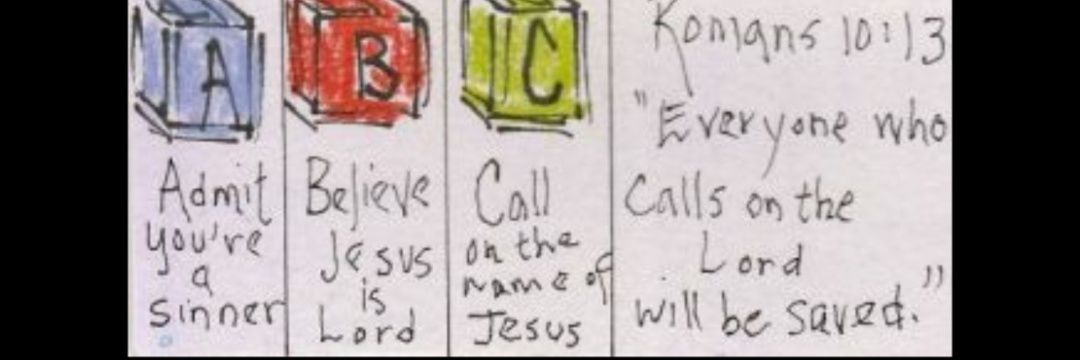 A
Admit
you're
a
sinner
B
Believe
Jesus
is
Lord
C
Call
on the
name of
Jesus
Romans 10:13
"Everyone who
Calls on the
Lord
will be saved."